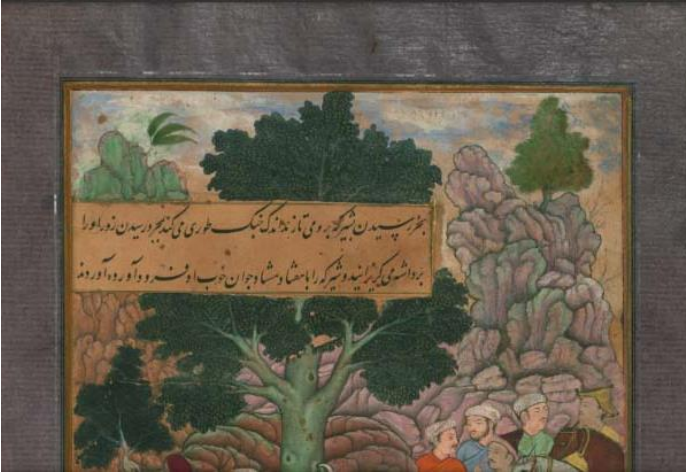 رسیدن شیرکه می تازند اندک جنک طوری می کند بمجرد رسیدن زور او را
برداشته می کریزانند و شیرکه را با هفتاد هشتاد جوان خوب او فرود آورده آوردند